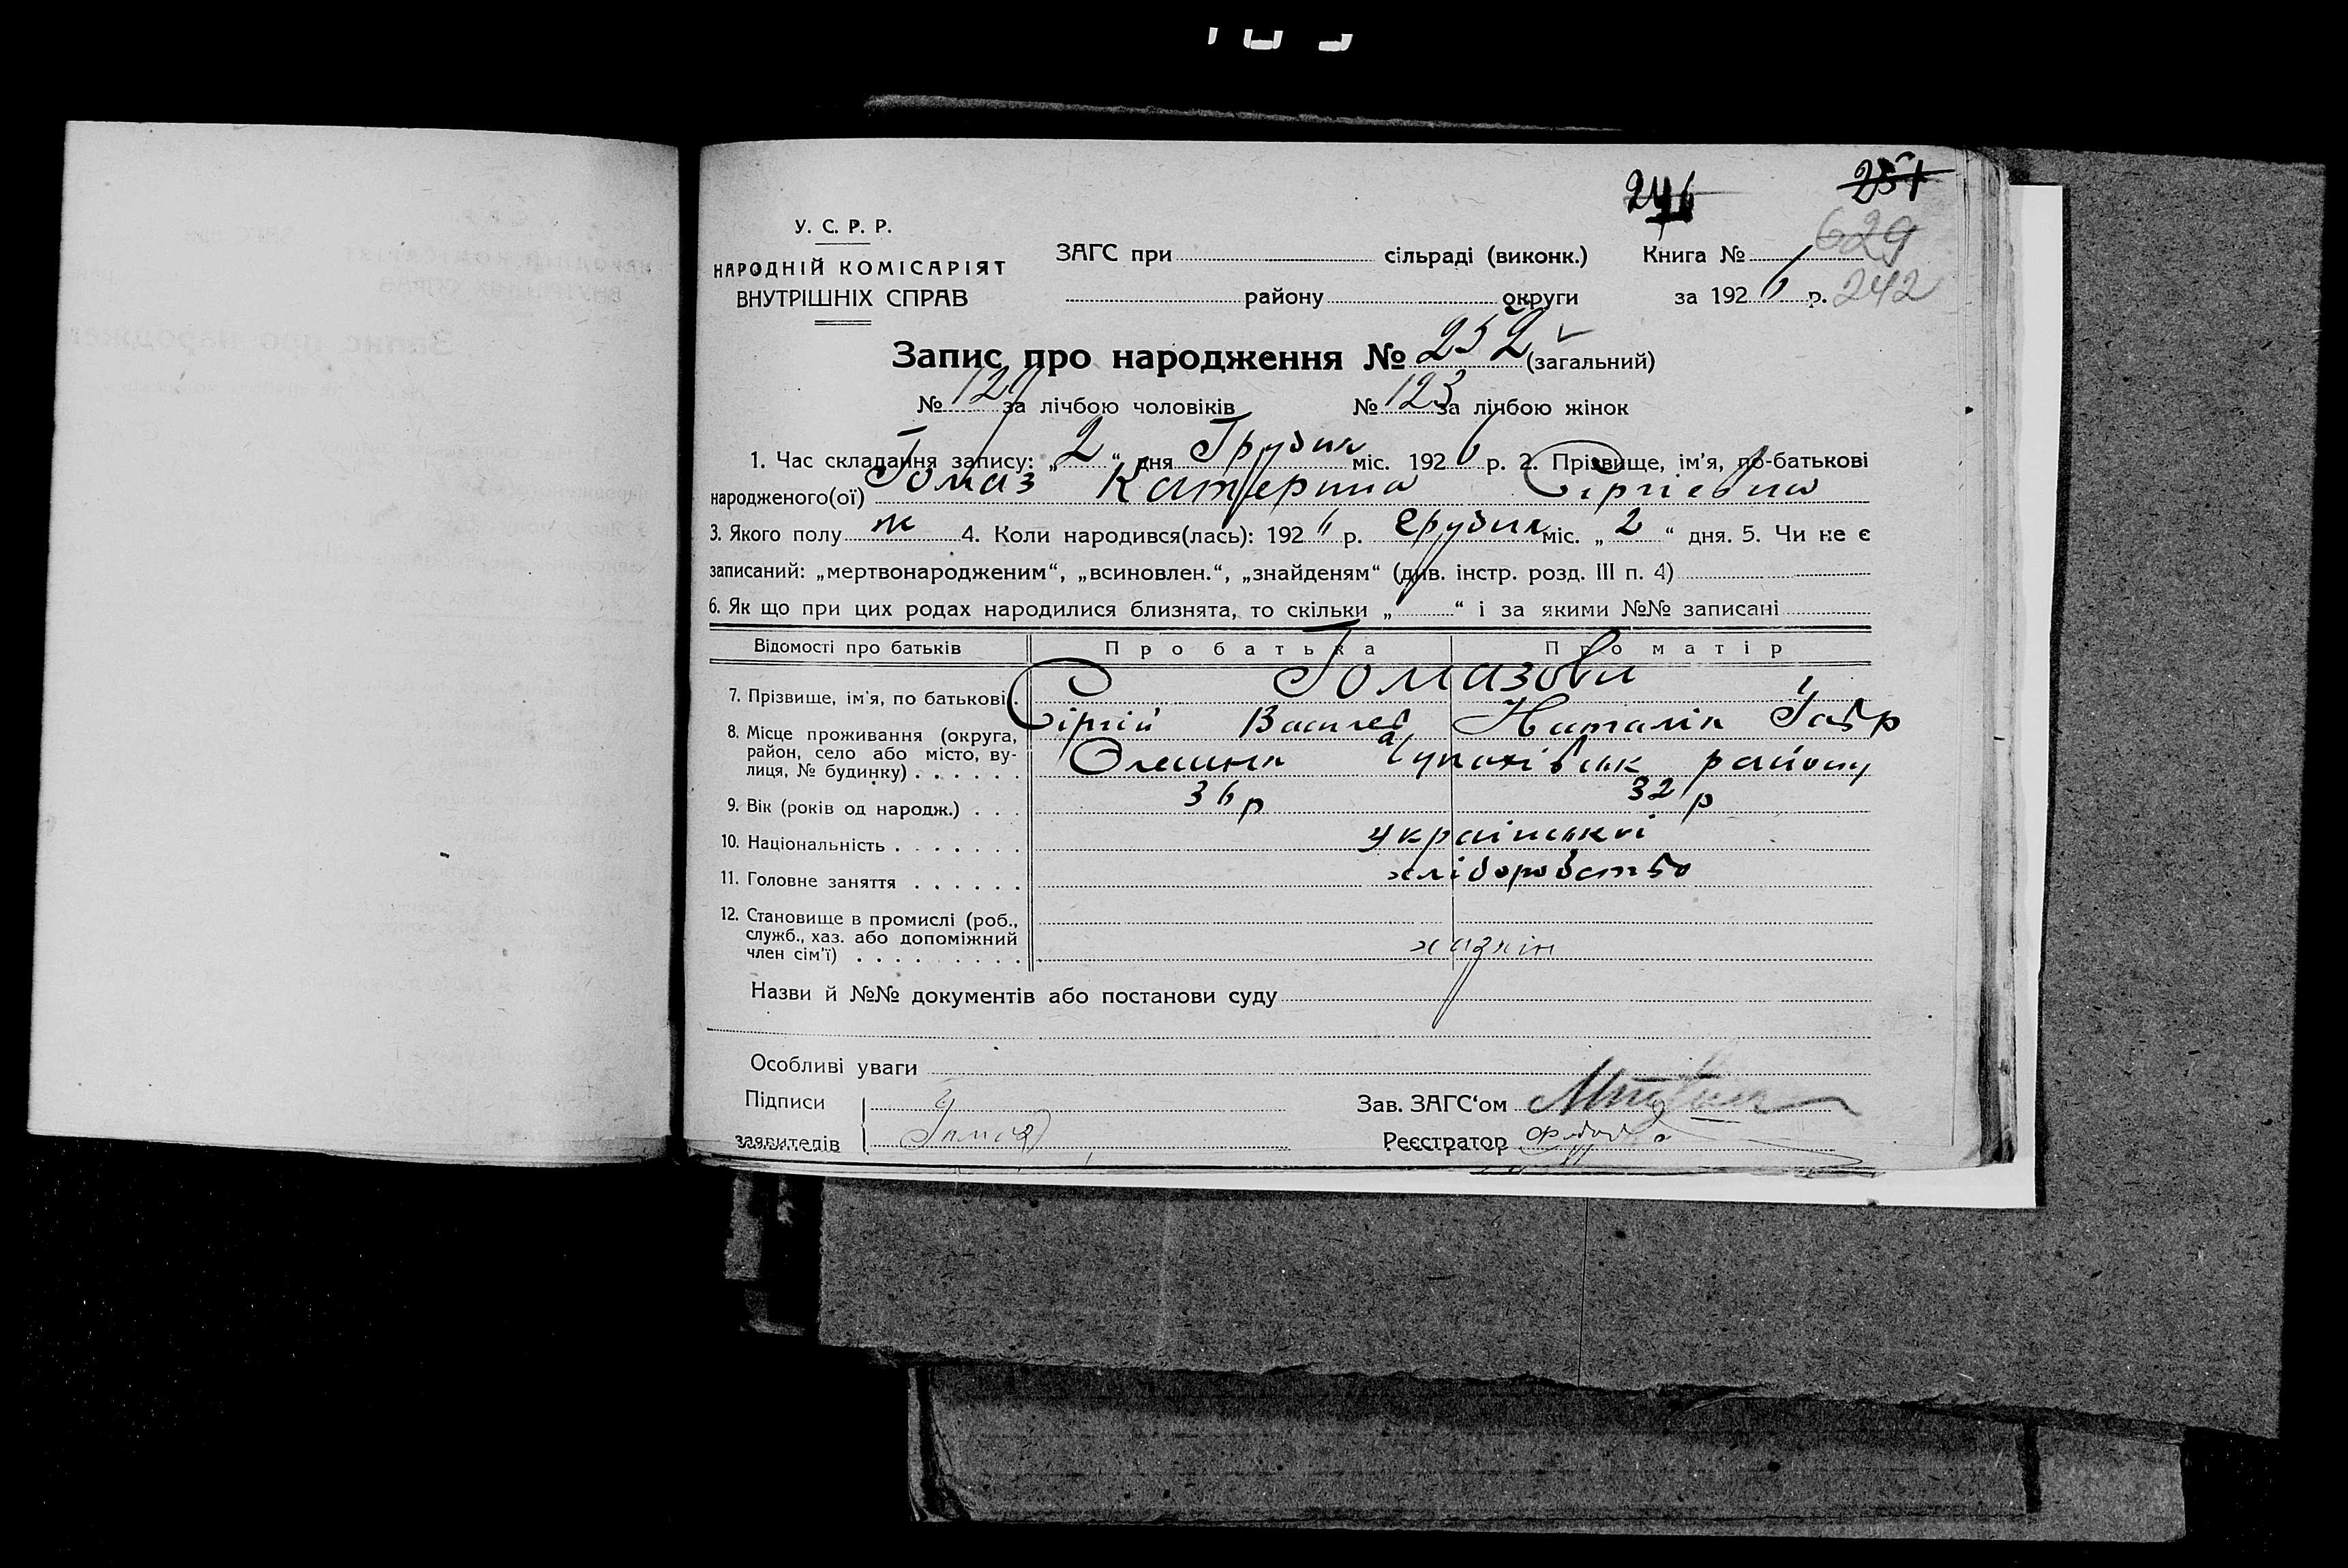 246
251
У. С. Р. Р.
НАРОДНІЙ КОМІСАРІЯТ
ВНУТРІШНІХ СПРАВ
ЗАГС при сільраді (виконк.)
району округи
Книга №
629
за 1926 р. 242
Запис про народження № 252 (загальний)
№ 129 за лічбою чоловіків № 123 за лічбою жінок
1. Час складання запису: „2“ дня Грудня міс. 1926 р. 2. Прізвище, ім’я, по-батькові
народженого(ої) Гомаз Катерина Сіргіевна
3. Якого полу ж 4. Коли народився(лась): 1926 р. Грудня міс. „2“ дня. 5. Чи не є
записаний: „мертвонародженим“, „всиновлен.“, „знайденям“ (див. інстр. розд. III п. 4)
6. Як що при цих родах народилися близнята, то скільки „ “ і за якими №№ записані
Відомості про батьків Про батька Про матір
7. Прізвище, ім’я, по батькові. Гомазови
Сіргій Василев Наталія Гавр
8. Місце проживання (округа, район, село або місто, вулиця, № будинку) . . . . . . Олешня Чупахівськ району
9. Вік (років од народж.) . . . 36 р 32 р
10. Національність . . . . . . . українські
11. Головне заняття . . . . . . хліборобство
12. Становище в промислі (роб., служб., хаз. або допоміжний член сім’ї) . . . . . . . . . хазяїн
Назви й №№ документів або постанови суду
Особливі уваги
Підписи
заявителів Гомаз
Зав. ЗАГС‘ом
Реєстратор